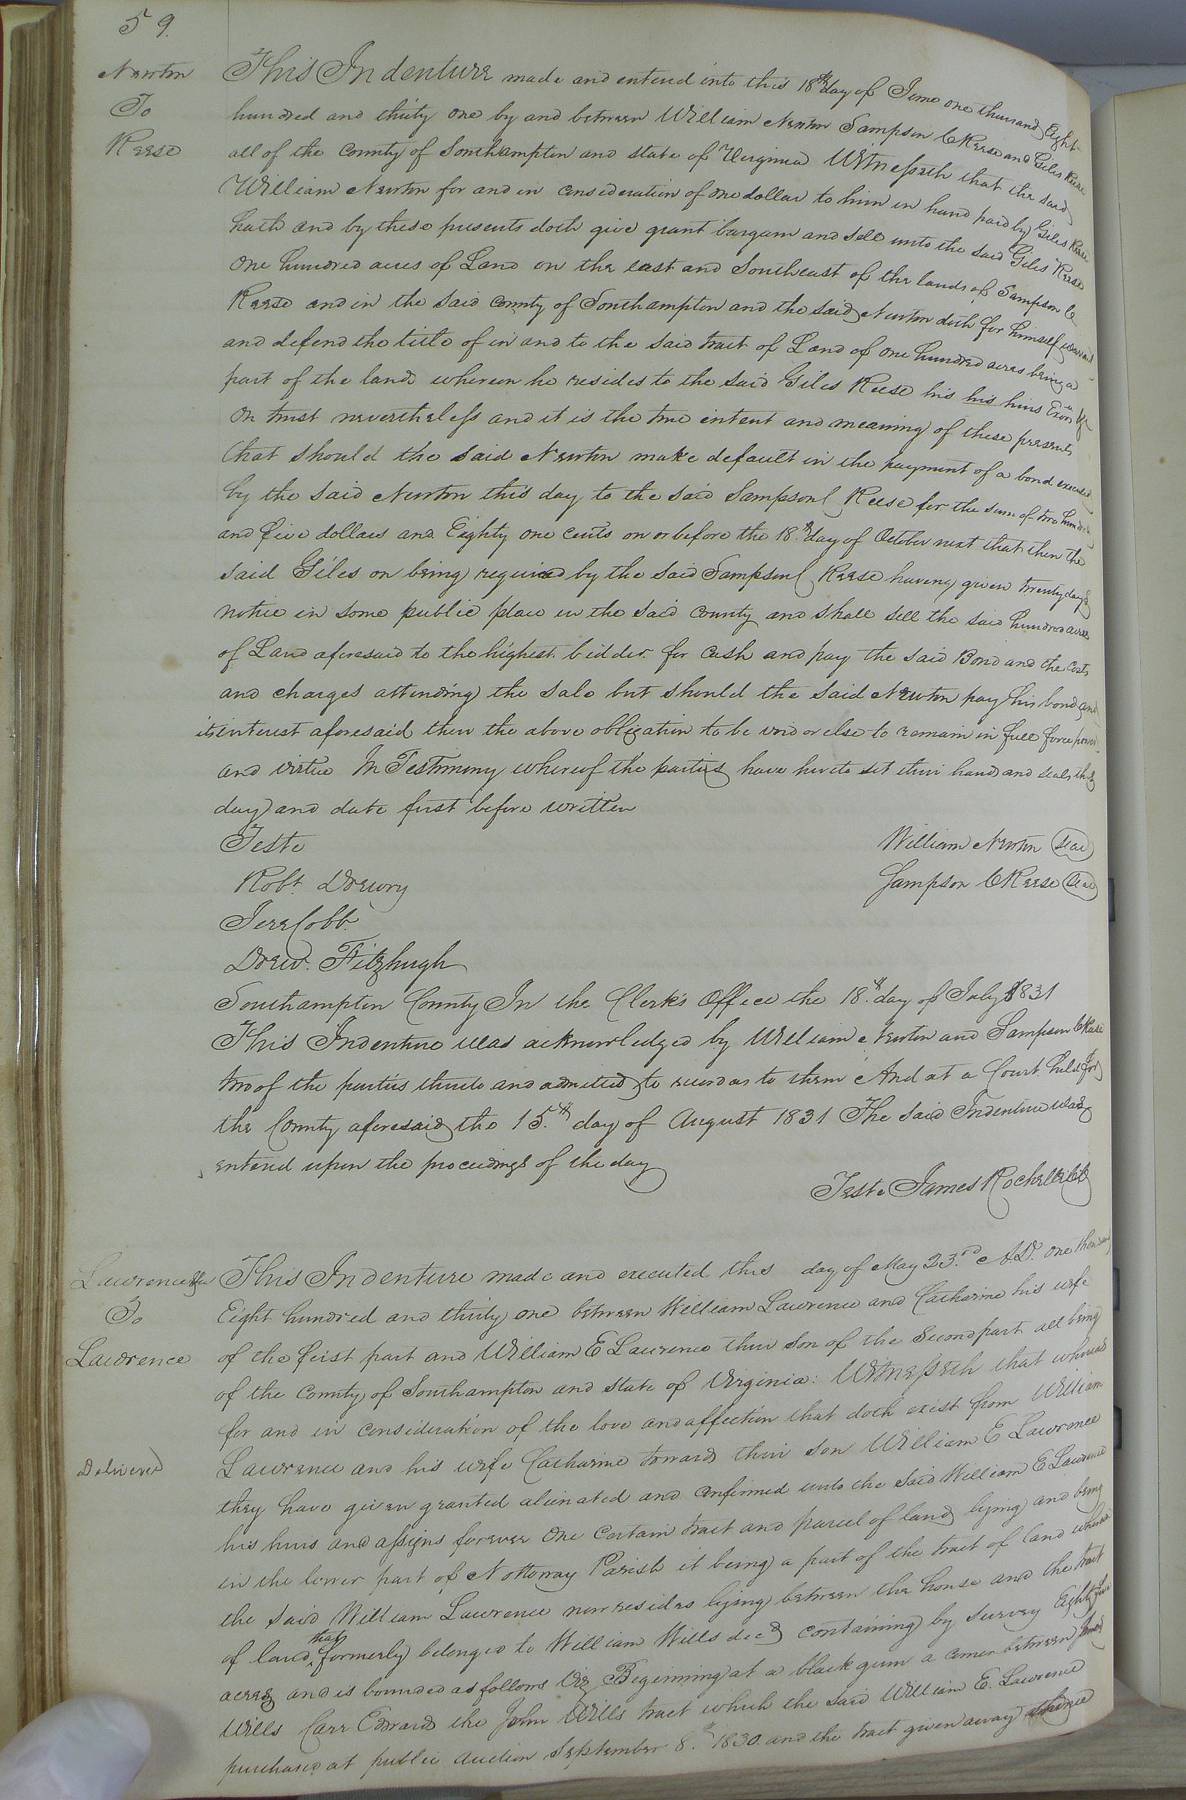 59.
Newton
To
Reese
This Indenture made and entered into this 18th day of June one thousand Eight
hundred and thirty one by and between William Newton Sampson C Reese and Giles Reese
all of the County of Southampton and state of Virginia Witnesseth that the said
William Newton for and in consideration of one dollar to him in hand paid by Giles Reese
hath and by these presents doth give grant bargain and sell unto the said Giles Reese
One hundred acres of Land on the east and Southeast of the lands of Sampson C
Reese and in the said County of Southampton and the said Newton doth for himself warrant
and defend the title of in and to the said tract of Land of one hundred acres being a
part of the land whereon he resides to the said Giles Reese his his heirs Exors &c
On trust nevertheless and it is the true intent and meaning of these presents
that should the said Newton make default in the payment of a bond executed
by the said Newton this day to the said Sampson C Reese for the sum of two hundred
and five dollars and Eighty one cents on or before the 18th day of October next that then the
said Giles on being required by the said Sampson C Reese having given twenty days
notice in some public place in the said county and shall sell the said hundred acres
of Land aforesaid to the highest bidder for cash and pay the said Bond and the costs
and charges attending the sale but should the said Newton pay his bond and
its interest aforesaid then the above obligation to be void or else to remain in full force power
and virtue In Testimony whereof the parties have hereto set their hand and seals the
day and date first before written
Teste William Newton Seal
Robt. Drewry Sampson C Reese Seal
Jere Cobb
Drew. Fitzhugh
Southampton County In the Clerk's Office the 18th day of July 1831
This Indenture was acknowledged by William Newton and Sampson C Reese
two of the parties thereto and admitted to record as to them And at a Court held for
the County aforesaid the 15th day of August 1831 The said Indenture was
entered upon the proceedings of the day
Teste James Rochelle Clk
Lawrence &ux
To
Lawrence
Delivered
This Indenture made and executed this day of May 23rd A.D. one thousand
Eight hundred and thirty one between William Lawrence and Catharine his wife
of the first part and William E Lawrence their son of the Second part all being
of the County of Southampton and State of Virginia: Witnesseth that whereas
for and in consideration of the love and affection that doth exist from William
Lawrence and his wife Catharine toward their son William E Lawrence
they have given granted alienated and confirmed unto the said William E Lawrence
his heirs and assigns forever One certain tract and parcel of land lying and being
in the lower part of Nottoway Parish it being a part of the tract of land whereon
the said William Lawrence now resides lying between the house and the tract
of land that formerly belonged to William Wills decd containing by survey Eighty
acres and is bounded as follows Viz Beginning at a black gum a corner between
Wills Carr Edwards the John Wills tract which the said William E. Lawrence
purchased at public auction September 8th 1830. and the tract given away thence